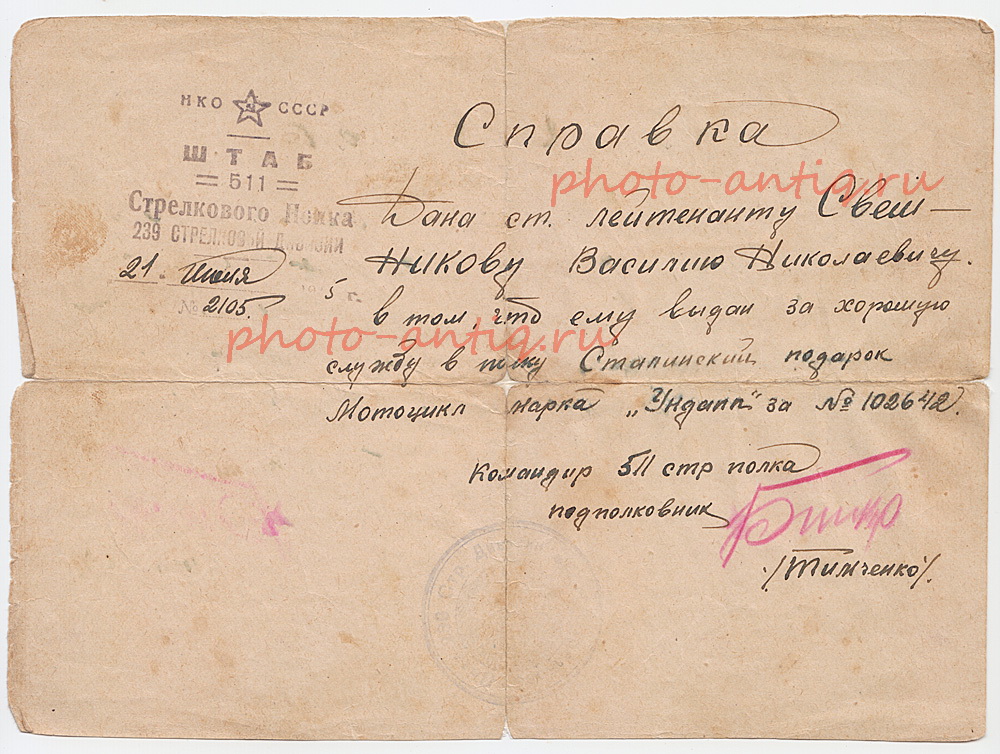 НКО СССР
ШТАБ
= 511 =
Стрелкового Полка
239 СТРЕЛКОВОЙ ДИВИЗИИ
21. Июля 5 г.
№ 2105.
Справка
photo-antiq.ru
Дана ст. лейтенанту Свеш-
никову Василию Николаевичу.
в том, что ему выдан за хорошую
photo-antiq.ru
службу в полку Сталинский подарок
Мотоцикл марка „Ундапп" за № 102642.
Командир 511 стр полка
подполковник
/Тимченко/.